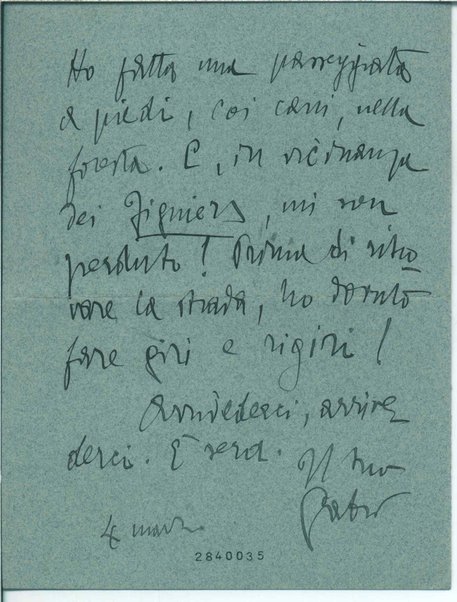 Ho fatta una passeggiata
a piedi, coi cani, nella
foresta. E, in vicinanza
dei Figuiers, mi son
perduto! Prima di ritro
vare la strada, ho dovuto
fare giri e rigiri!
Arrivederci, arrive
derci. È sera.
Il tuo
Gabri
4 marzo
2840035